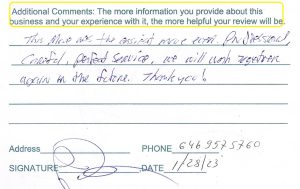 Additional Comments: The more information you provide about this
business and your experience with it, the more helpful your review will be.
This Move was the easiest move ever. Professional,
Careful, perfect service, we will work together
again in the future. Thank you!
Address
PHONE 6469575760
SIGNATURE DATE 1/28/23